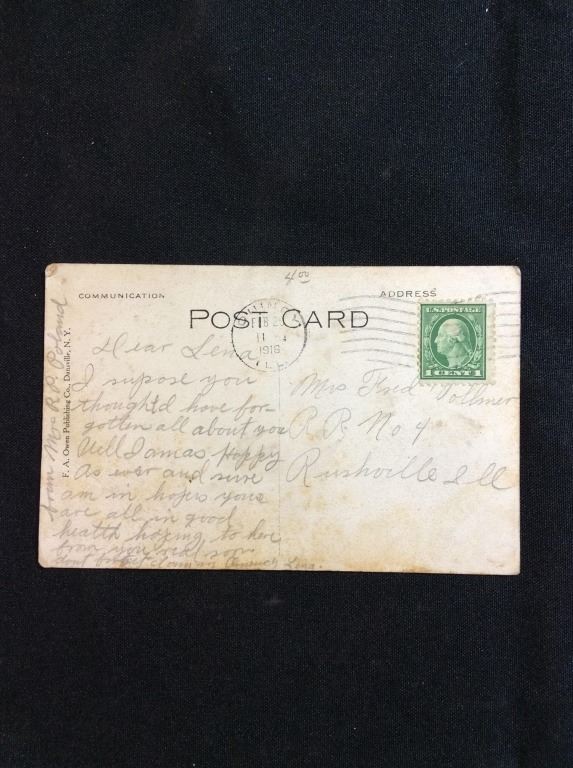 4.00
COMMUNICATION
ADDRESS
POST CARD
FEB 2
11
1916
ILL
U.S. POSTAGE
1 CENT 1
Dear Lena
I supose you
thought'd have for-
gotten all about you
Well I am as happy
As ever and sure
am in hopes youre
are all in good
health hoping to her
from you real soon
dont forget
Lena.
Mrs Fred Vollmer
R.R. No 4
Rushville Ill
from Mrs R.P. Poland
F. A. Owen Publishing Co., Dansville, N. Y.